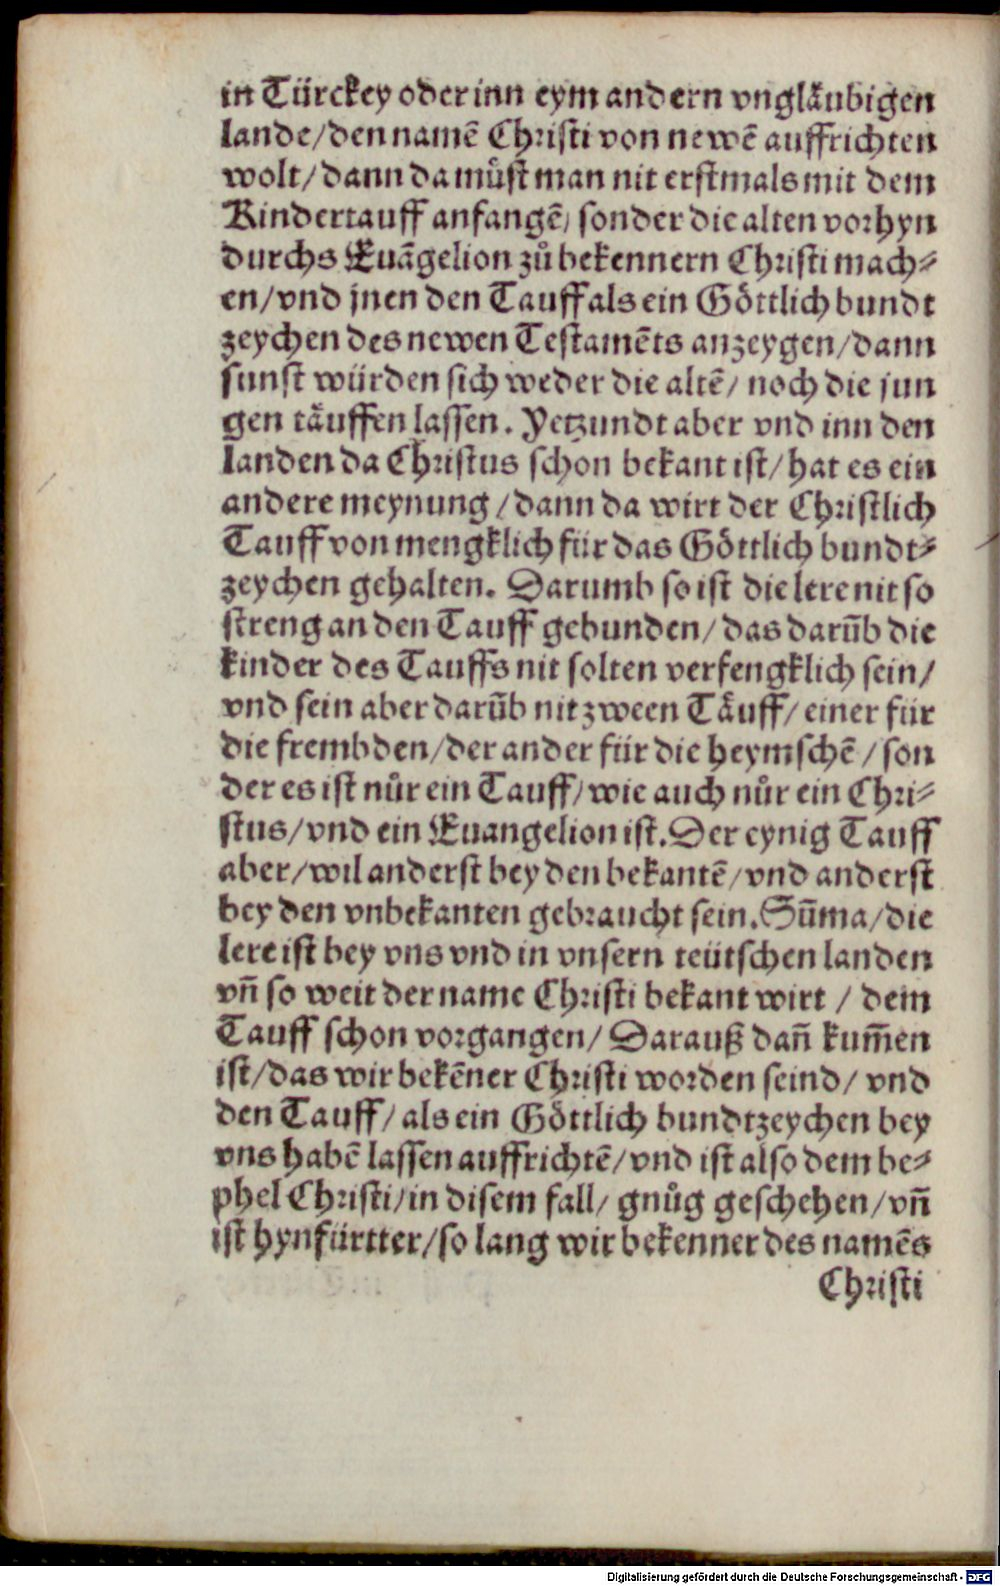 in Türckey oder inn eym andern vnglaͤubigen
lande/den namē Christi von newē auffrichten
wolt/dann da muͤst man nit erstmals mit dem
Kindertauff anfangē/ sonder die alten vorhyn
durchs Euāgelion zuͦ bekennern Christi mach⸗
en/vnd jnen den Tauff als ein Goͤttlich bundt
zeychen des newen Testamēts anzeygen/dann
sunst würden sich weder die altē/ noch die jun
gen taͤuffen lassen. Yetzundt aber vnd inn den
landen da Christus schon bekant ist/hat es ein
andere meynung/dann da wirt der Christlich
Tauff von mengklich für das Goͤttlich bundt⸗
zeychen gehalten. Darumb so ist die lere nit so
streng an den Tauff gebunden/das darūb die
kinder des Tauffs nit solten verfengklich sein/
vnd sein aber darūb nit zween Taͤuff/einer für
die frembden/der ander für die heymschē/son
der es ist nuͦr ein Tauff/wie auch nuͦr ein Chri⸗
stus/vnd ein Euangelion ist. Der eynig Tauff
aber/wil anderst bey den bekantē/vnd anderst
bey den vnbekanten gebraucht sein. Sūma/die
lere ist bey vns vnd in vnsern teütschen landen
vn̄ so weit der name Christi bekant wirt / dem
Tauff schon vorgangen/ Darauß dan̄ kum̄en
ist/das wir bekēner Christi worden seind/ vnd
den Tauff/als ein Goͤttlich bundtzeychen bey
vns habē lassen auffrichtē/vnd ist also dem be⸗
phel Christi/in disem fall/ gnuͦg geschehen/vn̄
ist hynfürtter/so lang wir bekenner des namēs
Christi
Digitalisierung gefördert durch die Deutsche Forschungsgemeinschaft - DFG